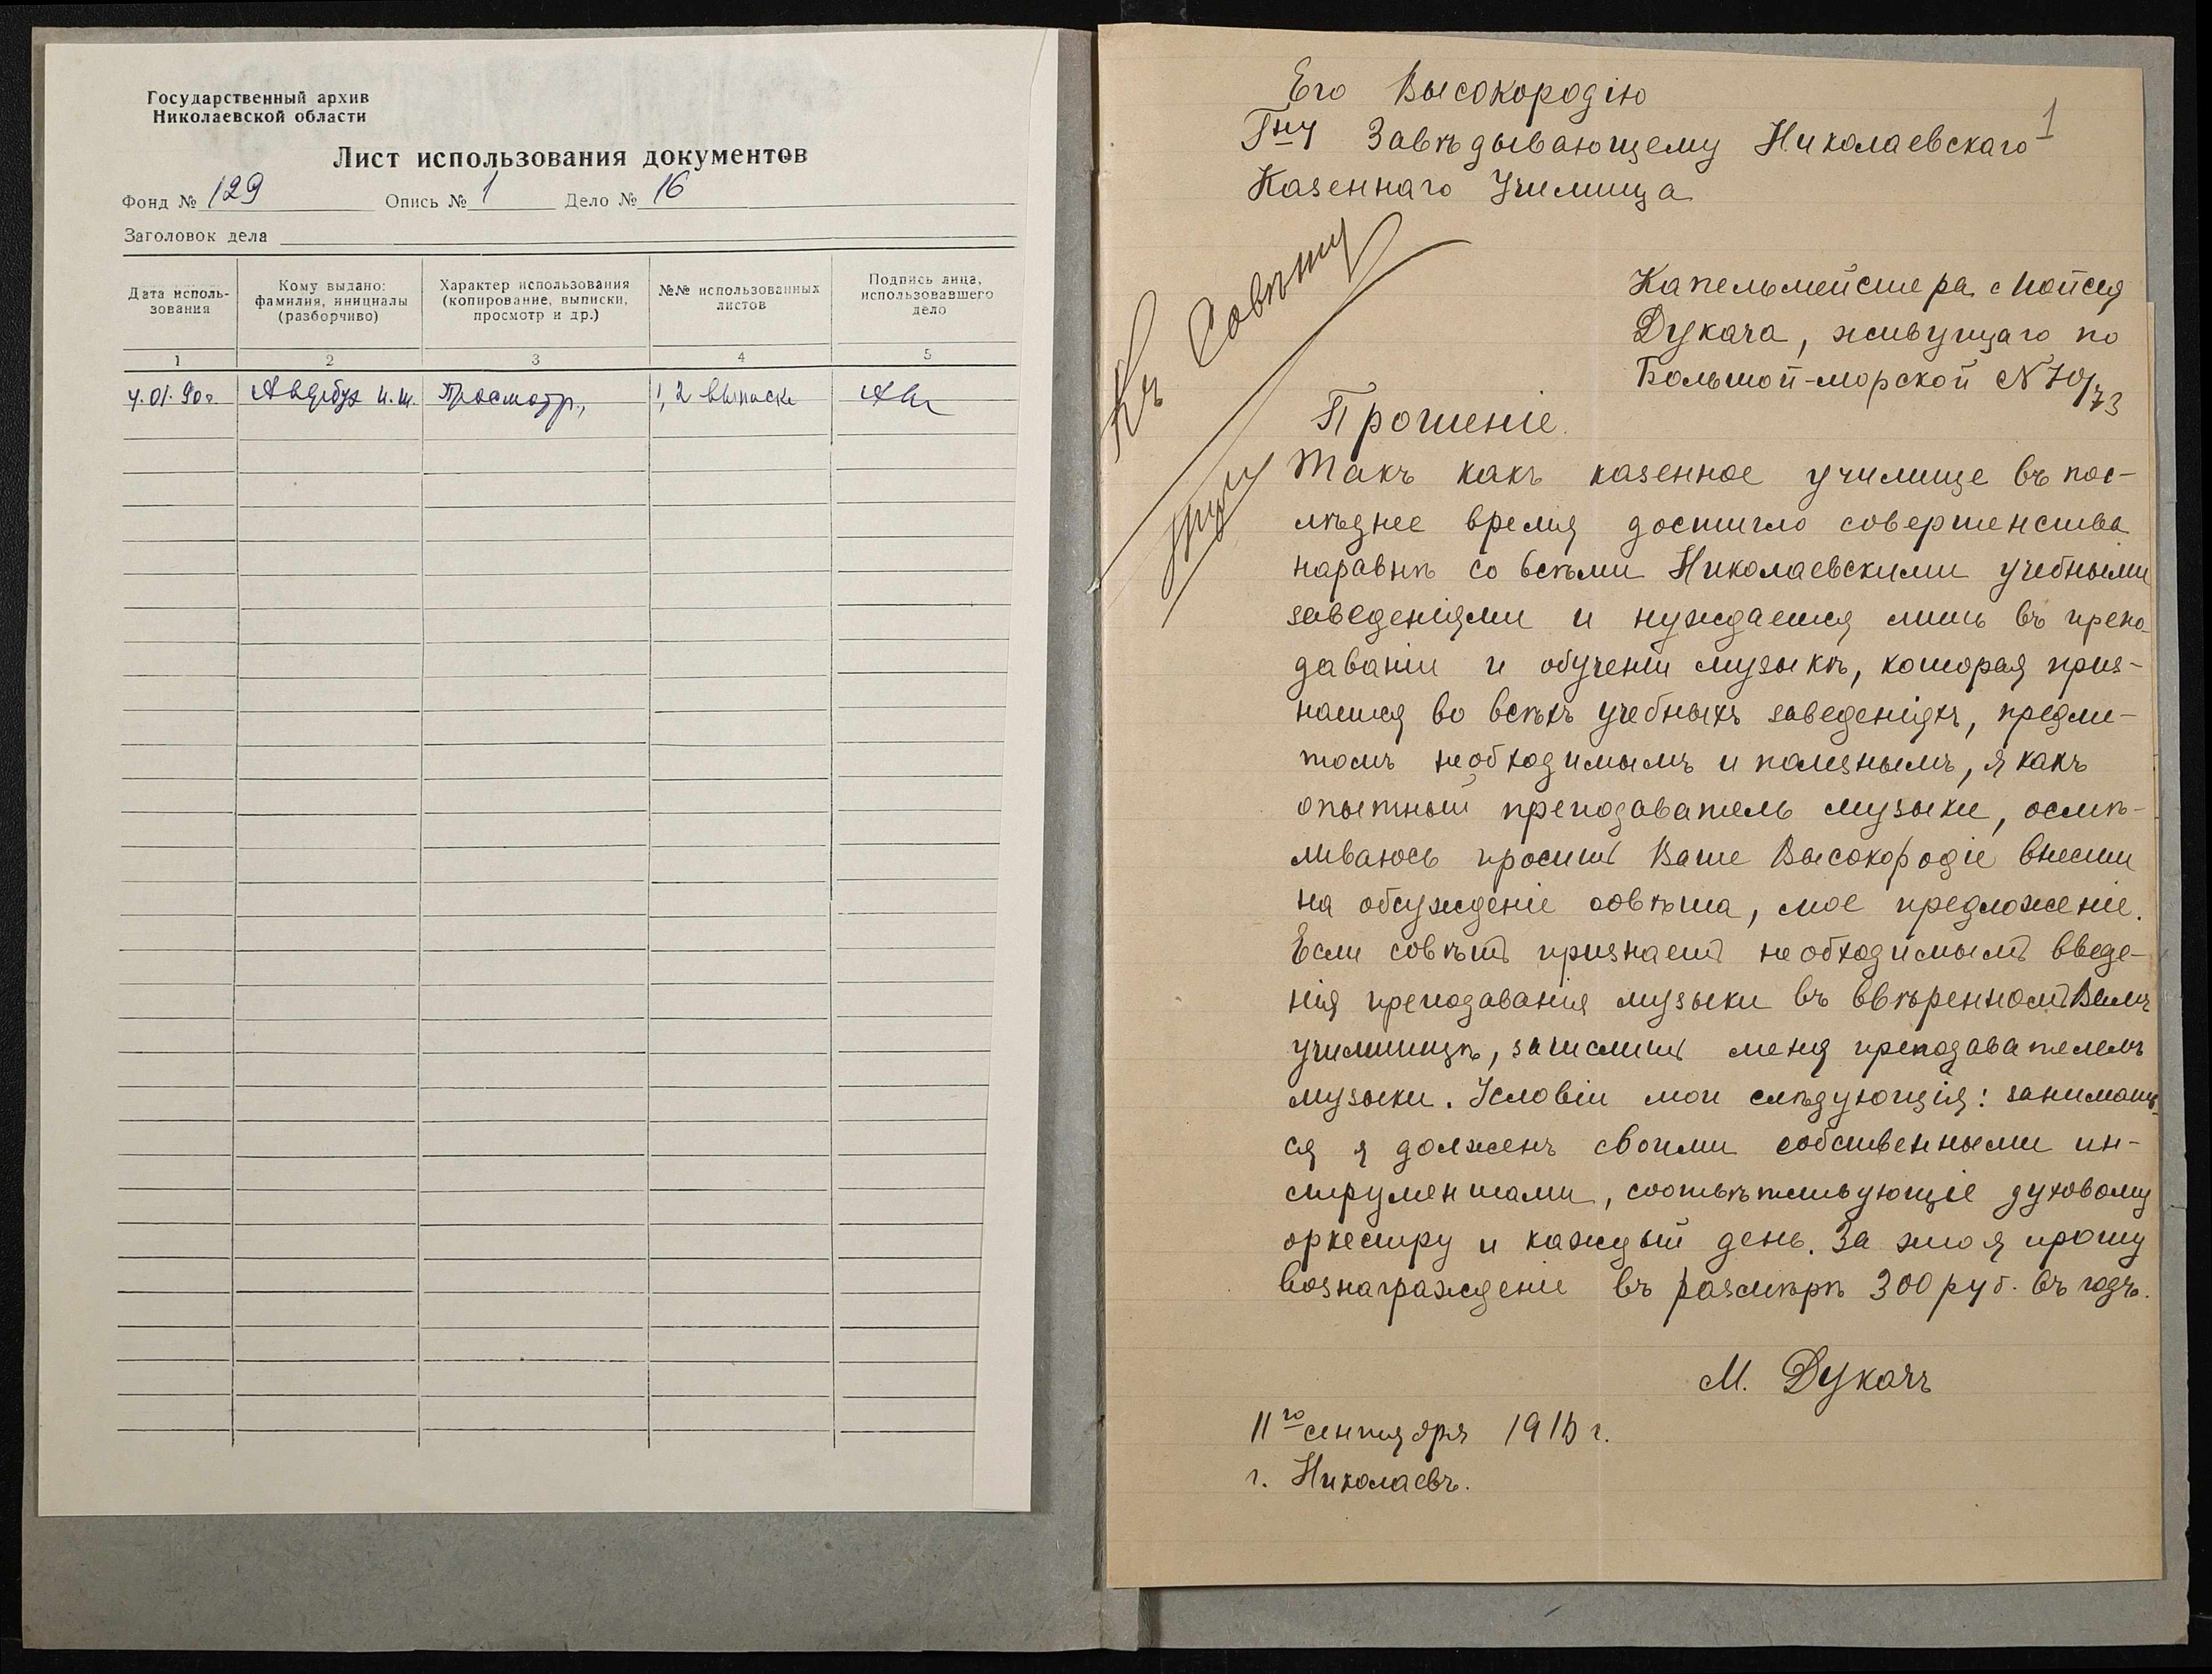 Государственный архив
Николаевской области
Лист использования документов
Фонд № 129 Опись № 1 Дело № 16
Заголовок дела
Дата исполь-
зования
Кому выдано:
фамилия, инициалы
(разборчиво)
Характер использования
(копирование, выписки,
просмотр и др.)
№№ использованных
листов
Подпись лица,
использовавшего
дело
1 2 3 4 5
4.01.90г. Авербух И.Ш. Просмотр., 1, 2 выписки
1
Его Высокородію
Гну Завѣдывающему Николаевскаго
Казеннаго Училища
Къ Совѣту
Капельмейстера Мойсея
Дукача, живущаго по
Большой-морской № 70/73
Прошеніе.
Такъ какъ казенное училище въ пос-
лѣднее время достигло совершенства
наравнѣ со всѣми Николаевскими учебными
заведеніями и нуждается лишь въ препо-
даваніи и обученіи музыкѣ, которая приз-
нается во всѣхъ учебныхъ заведеніяхъ, предме-
томъ необходимымъ и полезнымъ, я какъ
опытный преподаватель музыки, осмѣ-
ливаюсь просить Ваше Высокородіе внести
на обсужденіе совѣта, мое предложеніе.
Если совѣтъ признаетъ необходимымъ введе-
нія преподаванія музыки въ ввѣренномъ Вамъ
училищѣ, зачислить меня преподавателемъ
музыки. Условіи мои слѣдующія: занимать-
ся я долженъ своими собственными ин-
струментами, соотвѣтствующіе духовому
оркестру и каждый день. За это я прошу
вознагражденіе въ размѣрѣ 300 руб. въ годъ.
М. Дукачъ
11го сентября 1915 г.
г. Николаевъ.